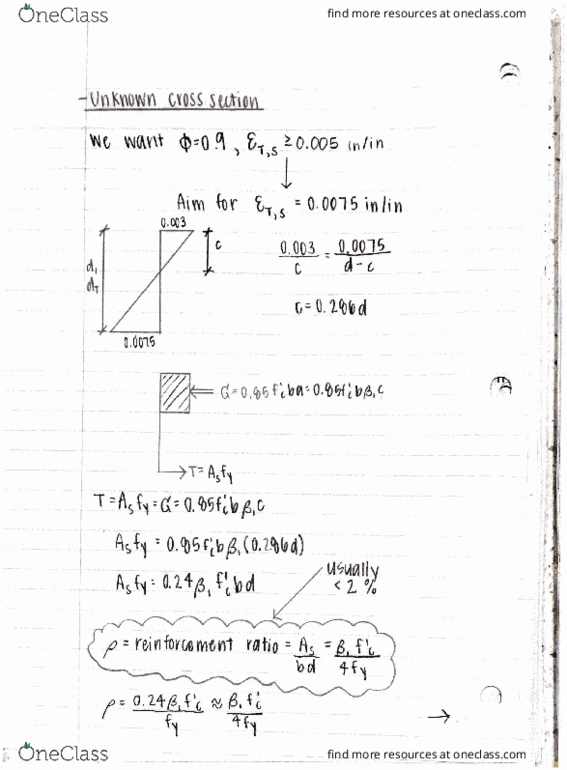 OneClass
find more resources at oneclass.com
- Unknown cross section
We want Φ=0.9, ε_T,s ≥ 0.005 in/in
Aim for ε_T,s = 0.0075 in/in
0.003
c
0.003/c = 0.0075/d-c
d, d_T
c = 0.286d
0.0075
C = 0.85f'c ba = 0.85f'c bβ₁c
T = A_s f_y
T = A_s f_y = C = 0.85f'c bβ₁c
A_s f_y = 0.85f'c bβ₁(0.286d)
usually
< 2 %
A_s f_y = 0.24β₁ f'c bd
ρ = reinforcement ratio = A_s/bd = β₁ f'c/4f_y
ρ = 0.24β₁f'c/f_y ≈ β₁ f'c/4f_y
OneClass
find more resources at oneclass.com